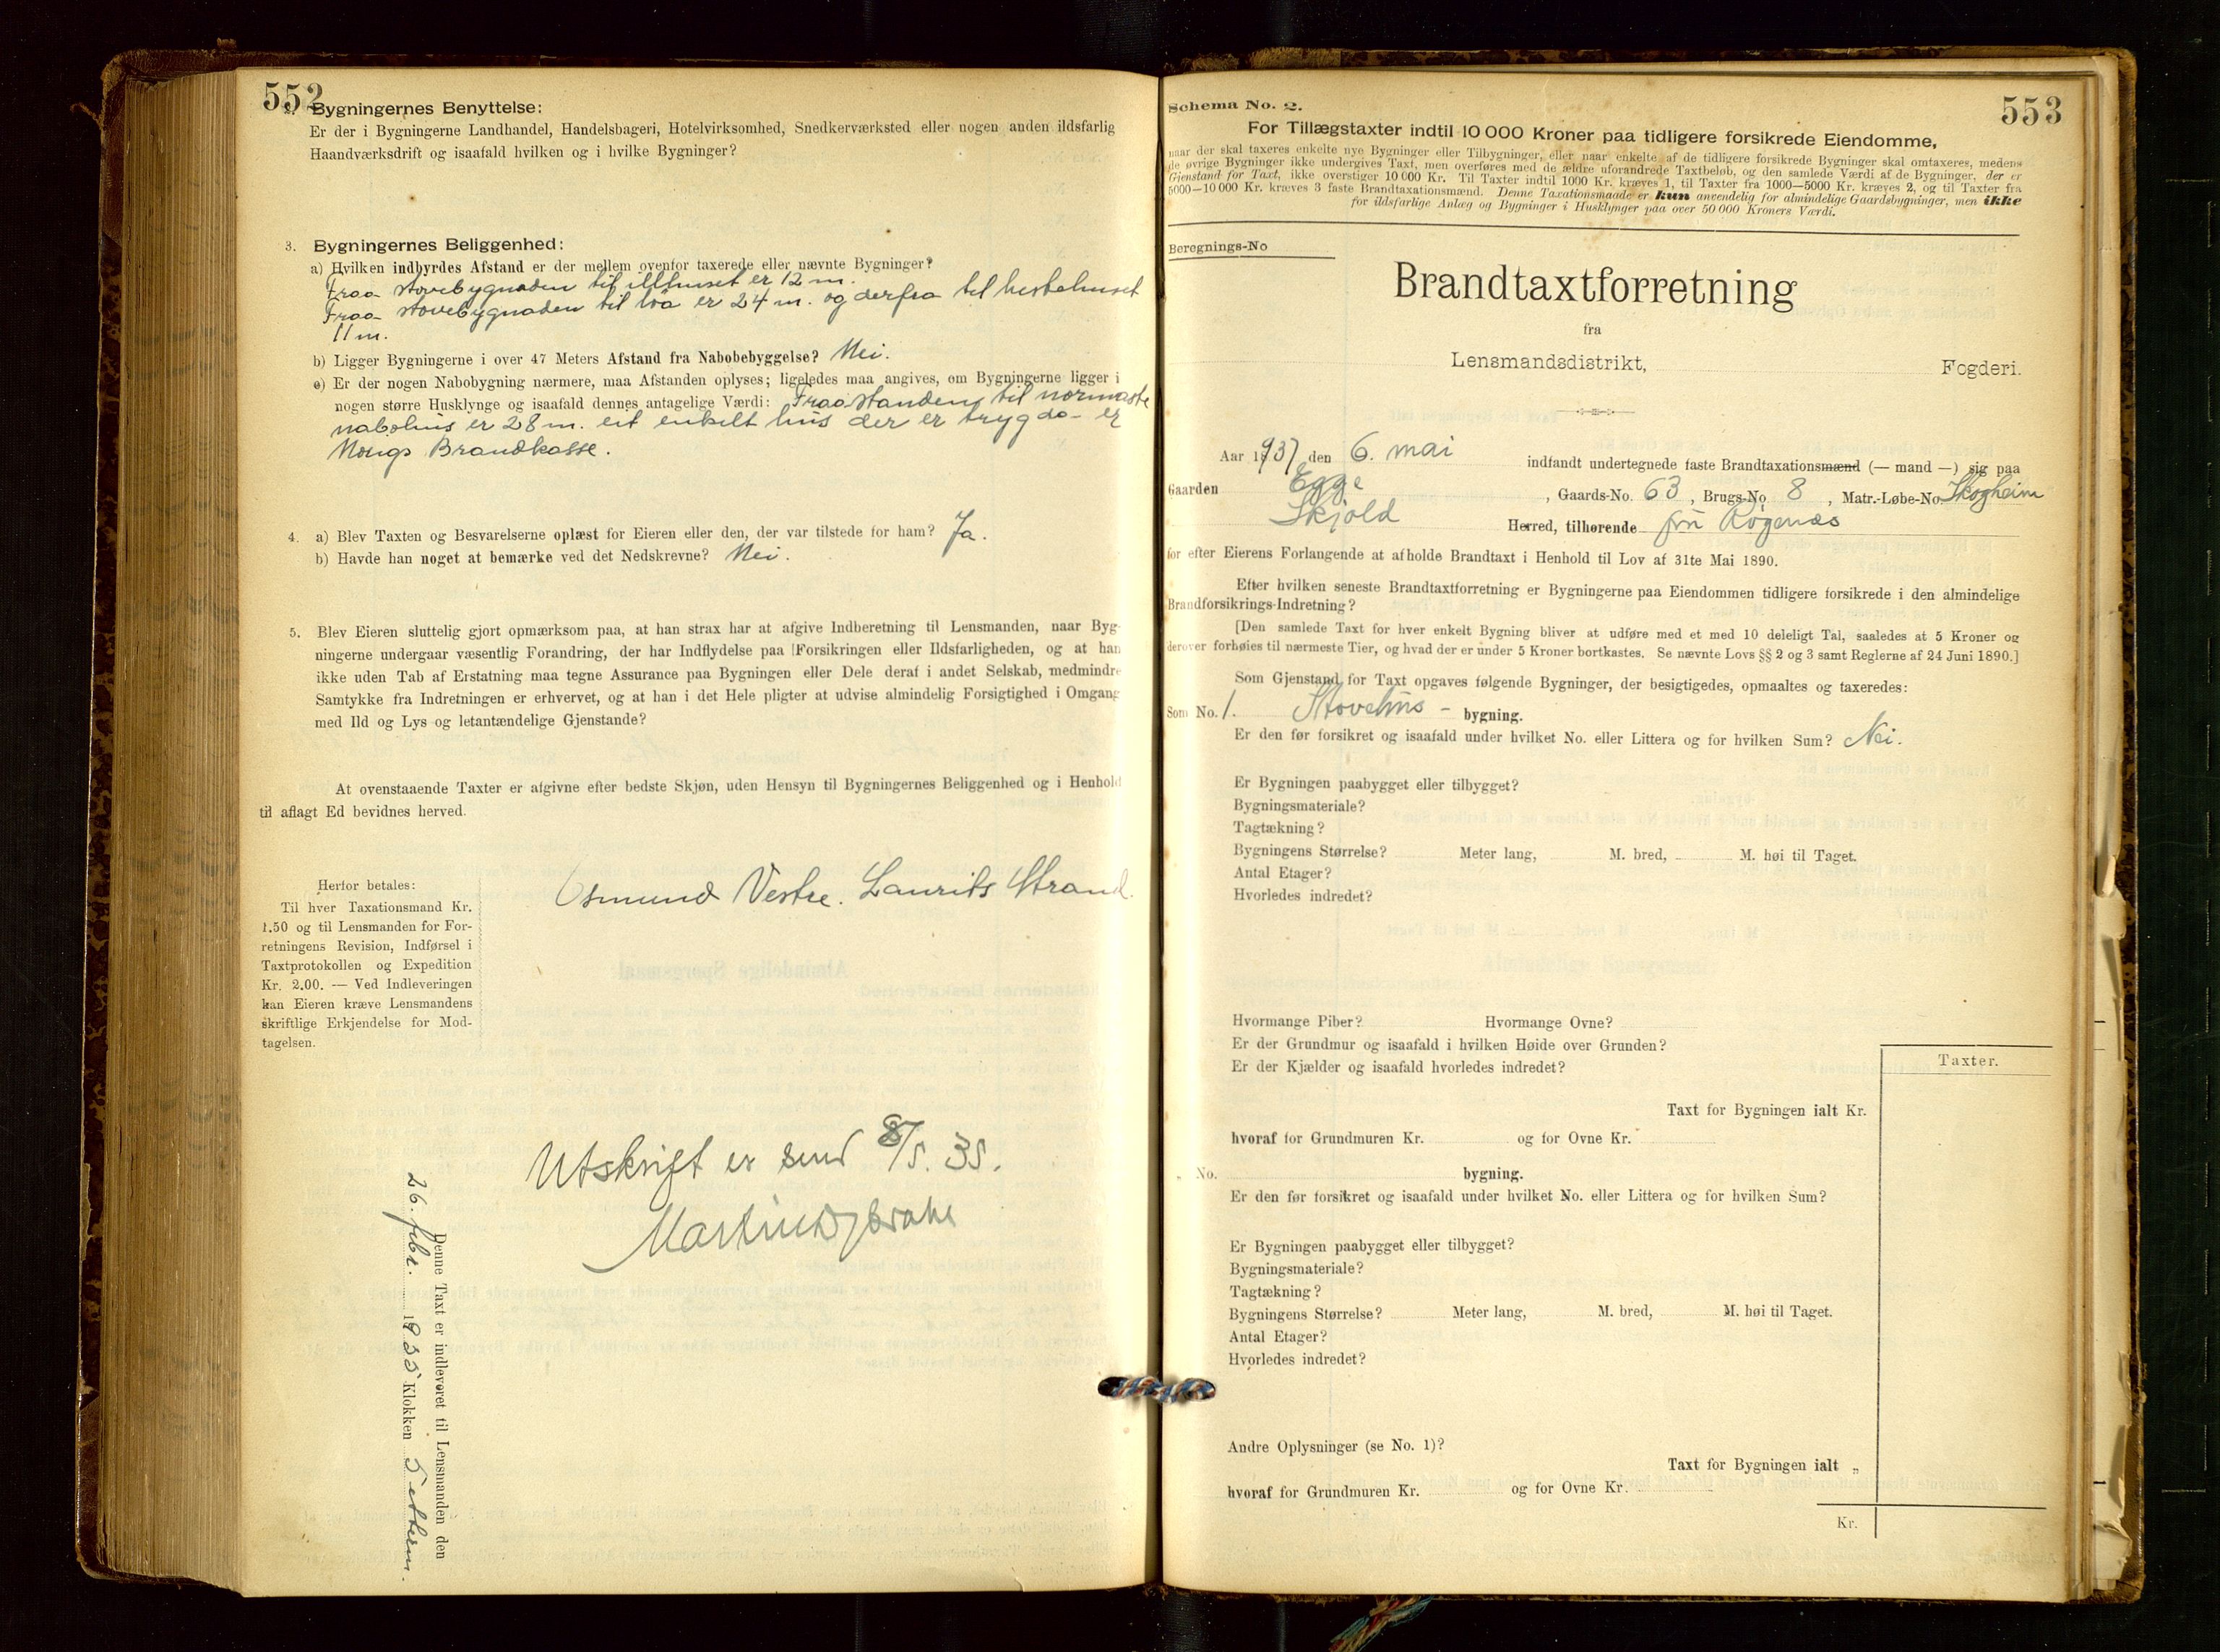 552
2. Bygningernes Benyttelse:
Er der i Bygningerne Landhandel, Handelsbageri, Hotelvirksomhed, Snedkerværksted eller nogen anden ildsfarlig
Haandværksdrift og isaafald hvilken og i hvilke Bygninger?
3. Bygningernes Beliggenhed:
a) Hvilken indbyrdes Afstand er der mellem ovenfor taxerede eller nævnte Bygninger?
Fraa stovebygnaden til illhuset er 12 m.
Fraa stovebygnaden til löa er 24 m. og derfra til hestehuset
11 m.
b) Ligger Bygningerne i over 47 Meters Afstand fra Nabobebyggelse? Nei.
c) Er der nogen Nabobygning nærmere, maa Afstanden oplyses; ligeledes maa angives, om Bygningerne ligger i
nogen større Husklynge og isaafald dennes antagelige Værdi: Fraastanden til nærmaste
nabohus er 28 m. eit enkelt hus der er trygda er
Norigs Brandkasse.
4. a) Blev Taxten og Besvarelserne oplæst for Eieren eller den, der var tilstede for ham? Ja.
b) Havde han noget at bemærke ved det Nedskrevne? Nei.
5. Blev Eieren sluttelig gjort opmærksom paa, at han strax har at afgive Indberetning til Lensmanden, naar Byg-
ningerne undergaar væsentlig Forandring, der har Indflydelse paa Forsikringen eller Ildsfarligheden, og at han
ikke uden Tab af Erstatning maa tegne Assurance paa Bygningen eller Dele deraf i andet Selskab, medmindre
Samtykke fra Indretningen er erhvervet, og at han i det Hele pligter at udvise almindelig Forsigtighed i Omgang
med Ild og Lys og letantændelige Gjenstande?
At ovenstaaende Taxter er afgivne efter bedste Skjøn, uden Hensyn til Bygningernes Beliggenhed og i Henhold
til aflagt Ed bevidnes herved.
Osmund Vestre. Laurits Strand.
Herfor betales:
Til hver Taxationsmand Kr.
1.50 og til Lensmanden for For-
retningens Revision, Indførsel i
Taxtprotokollen og Expedition
Kr. 2.00. — Ved Indleveringen
kan Eieren kræve Lensmandens
skriftlige Erkjendelse for Mod-
tagelsen.
Utskrift er send 8/5. 35.
Denne Taxt er indleveret til Lensmanden den
26. febr. 1935 Klokken 5 etterm.
Schema No. 2.
553
For Tillægstaxter indtil 10 000 Kroner paa tidligere forsikrede Eiendomme,
naar der skal taxeres enkelte nye Bygninger eller Tilbygninger, eller naar enkelte af de tidligere forsikrede Bygninger skal omtaxeres, medens
de øvrige Bygninger ikke undergives Taxt, men overføres med de ældre uforandrede Taxtbeløb, og den samlede Værdi af de Bygninger, der er
Gjenstand for Taxt, ikke overstiger 10 000 Kr. Til Taxter indtil 1000 Kr. kræves 1, til Taxter fra 1000—5000 Kr. kræves 2, og til Taxter fra
5000—10 000 Kr. kræves 3 faste Brandtaxationsmænd. Denne Taxationsmaade er kun anvendelig for almindelige Gaardsbygninger, men ikke
for ildsfarlige Anlæg og Bygninger i Husklynger paa over 50 000 Kroners Værdi.
Beregnings-No
Brandtaxtforretning
fra
Lensmandsdistrikt, Fogderi.
Aar 1937 den 6. mai indfandt undertegnede faste Brandtaxationsmænd (— mand —) sig paa
Gaarden Egge, Gaards-No. 63, Brugs-No 8, Matr.-Løbe-No. Skogheim
Skjold Herred, tilhørende frü Røgenæs
for efter Eierens Forlangende at afholde Brandtaxt i Henhold til Lov af 31te Mai 1890.
Efter hvilken seneste Brandtaxtforretning er Bygningerne paa Eiendommen tidligere forsikrede i den almindelige
Brandforsikrings-Indretning?
[Den samlede Taxt for hver enkelt Bygning bliver at udføre med et med 10 deleligt Tal, saaledes at 5 Kroner og
derover forhøies til nærmeste Tier, og hvad der er under 5 Kroner bortkastes. Se nævnte Lovs §§ 2 og 3 samt Reglerne af 24 Juni 1890.]
Som Gjenstand for Taxt opgaves følgende Bygninger, der besigtigedes, opmaaltes og taxeredes:
Som No. 1. Stovehus - bygning.
Er den før forsikret og isaafald under hvilket No. eller Littera og for hvilken Sum? Nei.
Er Bygningen paabygget eller tilbygget?
Bygningsmateriale?
Tagtækning?
Bygningens Størrelse? Meter lang, M. bred, M. høi til Taget.
Antal Etager?
Hvorledes indredet?
Hvormange Piber? Hvormange Ovne?
Er der Grundmur og isaafald i hvilken Høide over Grunden?
Er der Kjælder og isaafald hvorledes indredet?
Taxter.
Taxt for Bygningen ialt Kr.
hvoraf for Grundmuren Kr. og for Ovne Kr.
„ No. bygning.
Er den før forsikret og isaafald under hvilket No. eller Littera og for hvilken Sum?
Er Bygningen paabygget eller tilbygget?
Bygningsmateriale?
Tagtækning?
Bygningens Størrelse? Meter lang, M. bred, M. høi til Taget.
Antal Etager?
Hvorledes indredet?
Andre Oplysninger (se No. 1)?
Taxt for Bygningen ialt „
hvoraf for Grundmuren Kr. og for Ovne Kr.
Kr.